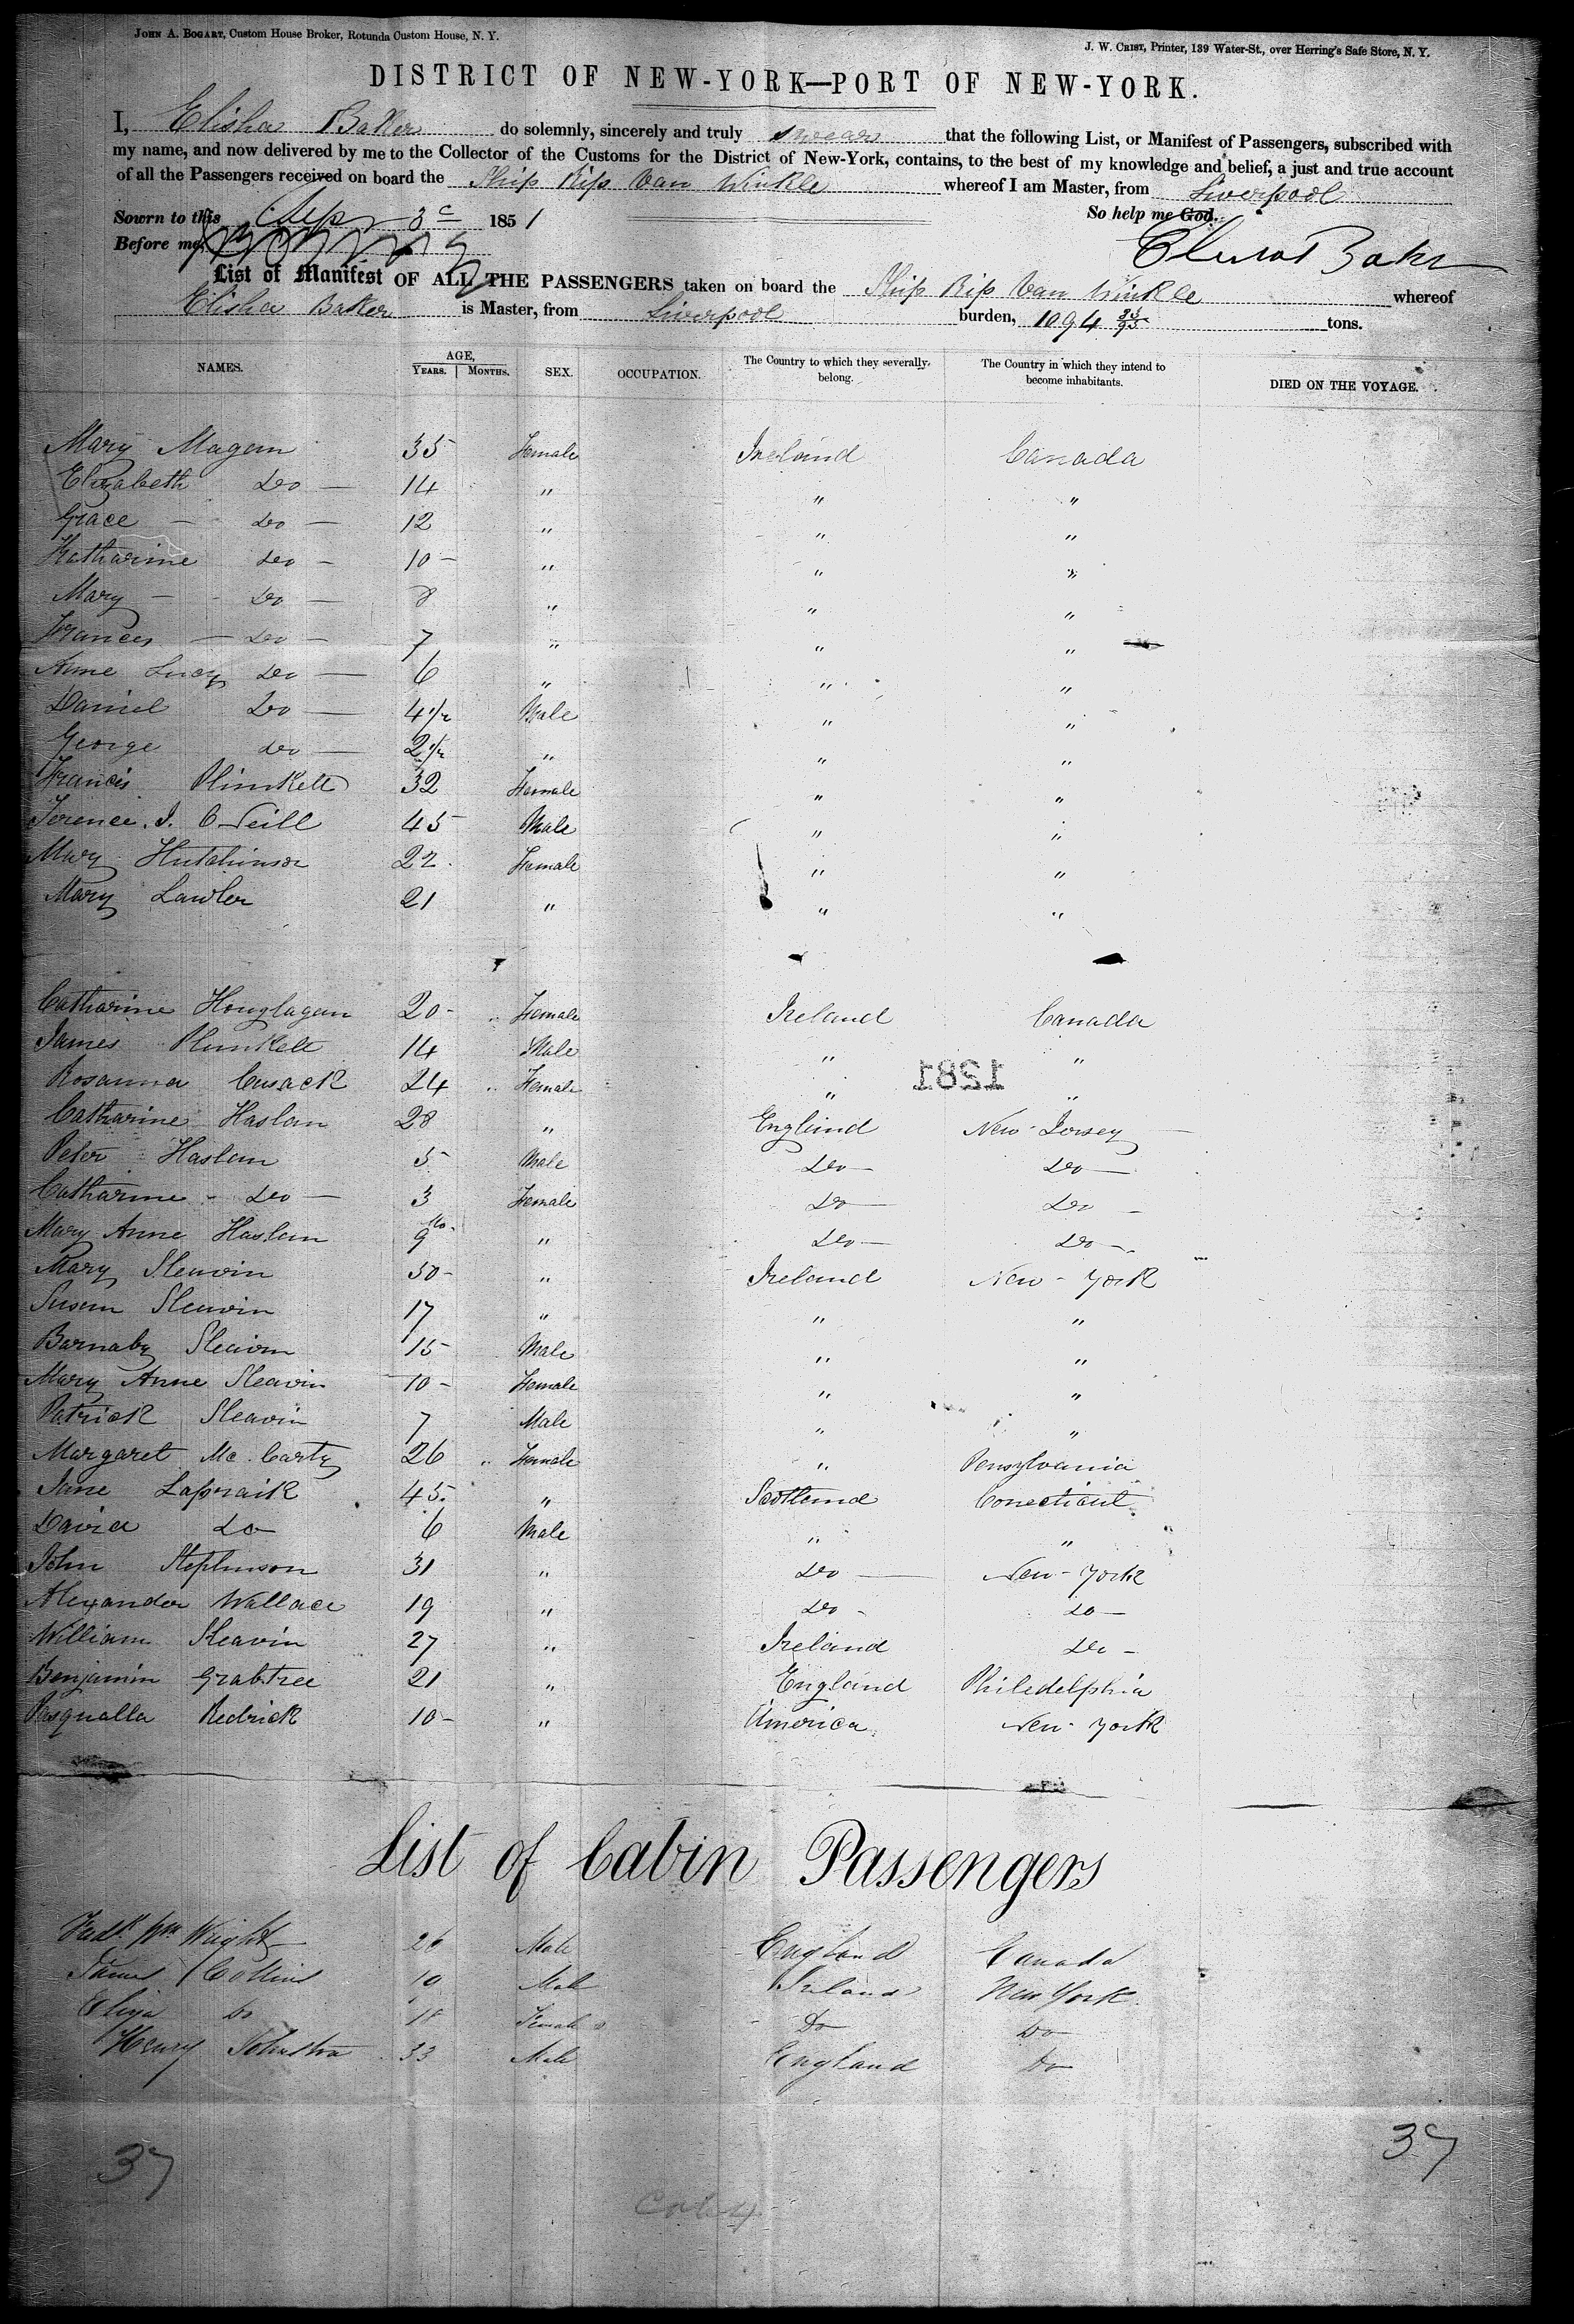 JOHN A. BOGART, Custom House Broker, Rotunda Custom House, N. Y.
J. W. CRIST, Printer, 139 Water-St., over Herring's Safe Store, N. Y.
DISTRICT OF NEW-YORK—PORT OF NEW-YORK.
I, Elisha Baker do solemnly, sincerely and truly swear that the following List, or Manifest of Passengers, subscribed with
my name, and now delivered by me to the Collector of the Customs for the District of New-York, contains, to the best of my knowledge and belief, a just and true account
of all the Passengers received on board the Ship Rip Van Winkle whereof I am Master, from Liverpool
Sowrn to this Sep 3 1851 So help me God.
Before me, Elisha Baker
List of Manifest OF ALL THE PASSENGERS taken on board the Ship Rip Van Winkle whereof
Elisha Baker is Master, from Liverpool burden, 1094 tons.
NAMES. AGE, YEARS. MONTHS. SEX. OCCUPATION. The Country to which they severally belong. The Country in which they intend to become inhabitants. DIED ON THE VOYAGE.
Mary Magan 35 Female Ireland Canada
Elizabeth Do — 14 " " "
Grace — Do — 12 " " "
Katharine Do — 10 — " " "
Mary — Do — 8 " " "
Frances — Do — 7 " " "
Anne Lucy Do — 6 " " "
Daniel Do — 4 1/2 Male " "
George Do — 2 1/2 " " "
Francis Plunkett 32 Female " "
Terence J. O Neill 45 Male " "
Mary Hutchinson 22 Female " "
Mary Lawler 21 " " "
Catharine 20 Female Ireland Canada
James Plunkett 14 Male " "
Rosanna Cusack 24 Female " "
1281
Catharine Haslam 28 " England New-Jersey
Peter Haslam 5 Male Do — Do —
Catharine - Do — 3 Female Do — Do —
Mary Anne Haslam 9 Mo. " Do — Do —
Mary Sleavin 30 — " Ireland New-York
Susan Sleavin 17 " " "
Barnaby Sleavin 15 Male " "
Mary Anne Sleavin 10 — Female " "
Patrick Sleavin 7 Male " "
Margaret Mc. Carty 26 Female " Pensylvania
Jane Lapraik 45 " Scotland Conecticut
David Do 6 Male " "
John Stephinson 31 " Do — New-York
Alexander Wallace 19 " Do - Do —
William Sleavin 27 " Ireland Do -
Benjamin Grabtree 21 " England Philedelphia
Pasqualla Redrick 10 — " America New-York
List of Cabin Passengers
Fredk Wm Wright 26 Male England Canada
James Collins 19 Male Ireland New York
Eliza Do 18 Female Do Do
Henry Johnston 33 Male England Do
37 37